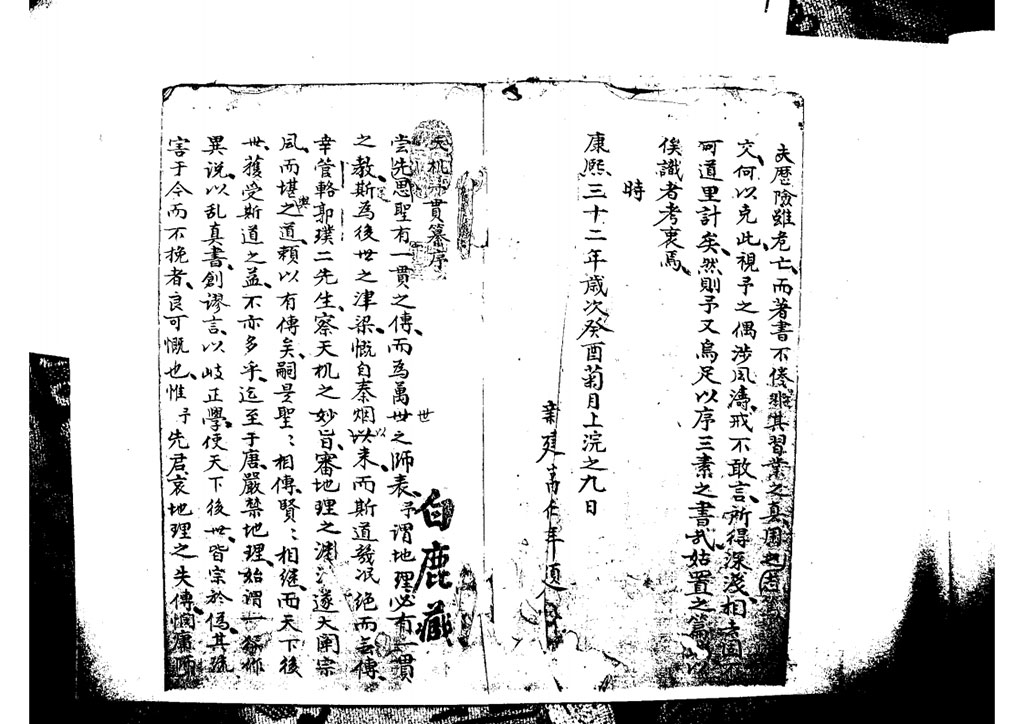 夫歷險雖危亡、而著書不倦、非其習業之真、固之者
交、何以克此、視予之偶涉風濤、戒不敢言、所得深淺、相去固
可道里計矣、然則予又烏足以序三素之書哉、姑置之篇以
俟識者考衷焉、
時
康熙三十二年歲次癸酉菊月上浣之九日
新建 仁年題
天机一貫纂序
白鹿藏
嘗先思聖有一貫之傳、而為萬世之師表、予謂地理必有一貫
世
之教、斯為後世之津梁、慨自秦烟以来、而斯道幾泯絕而無傳
幸管輅郭璞二先生、察天机之妙旨、審地理之淵 、遂大開宗
風、而堪輿之道、賴以有傳矣、嗣是聖：相傳、賢：相継、而天下後
世、獲受斯道之益、不亦多乎、迄至于唐、嚴禁地理、始謂一 作
異說、以乱真書、創謬言、以岐正學、使天下後世、皆宗於偽、其流
害于今而不挽者、良可慨也、惟予先君、哀地理之失傳、憫庸師